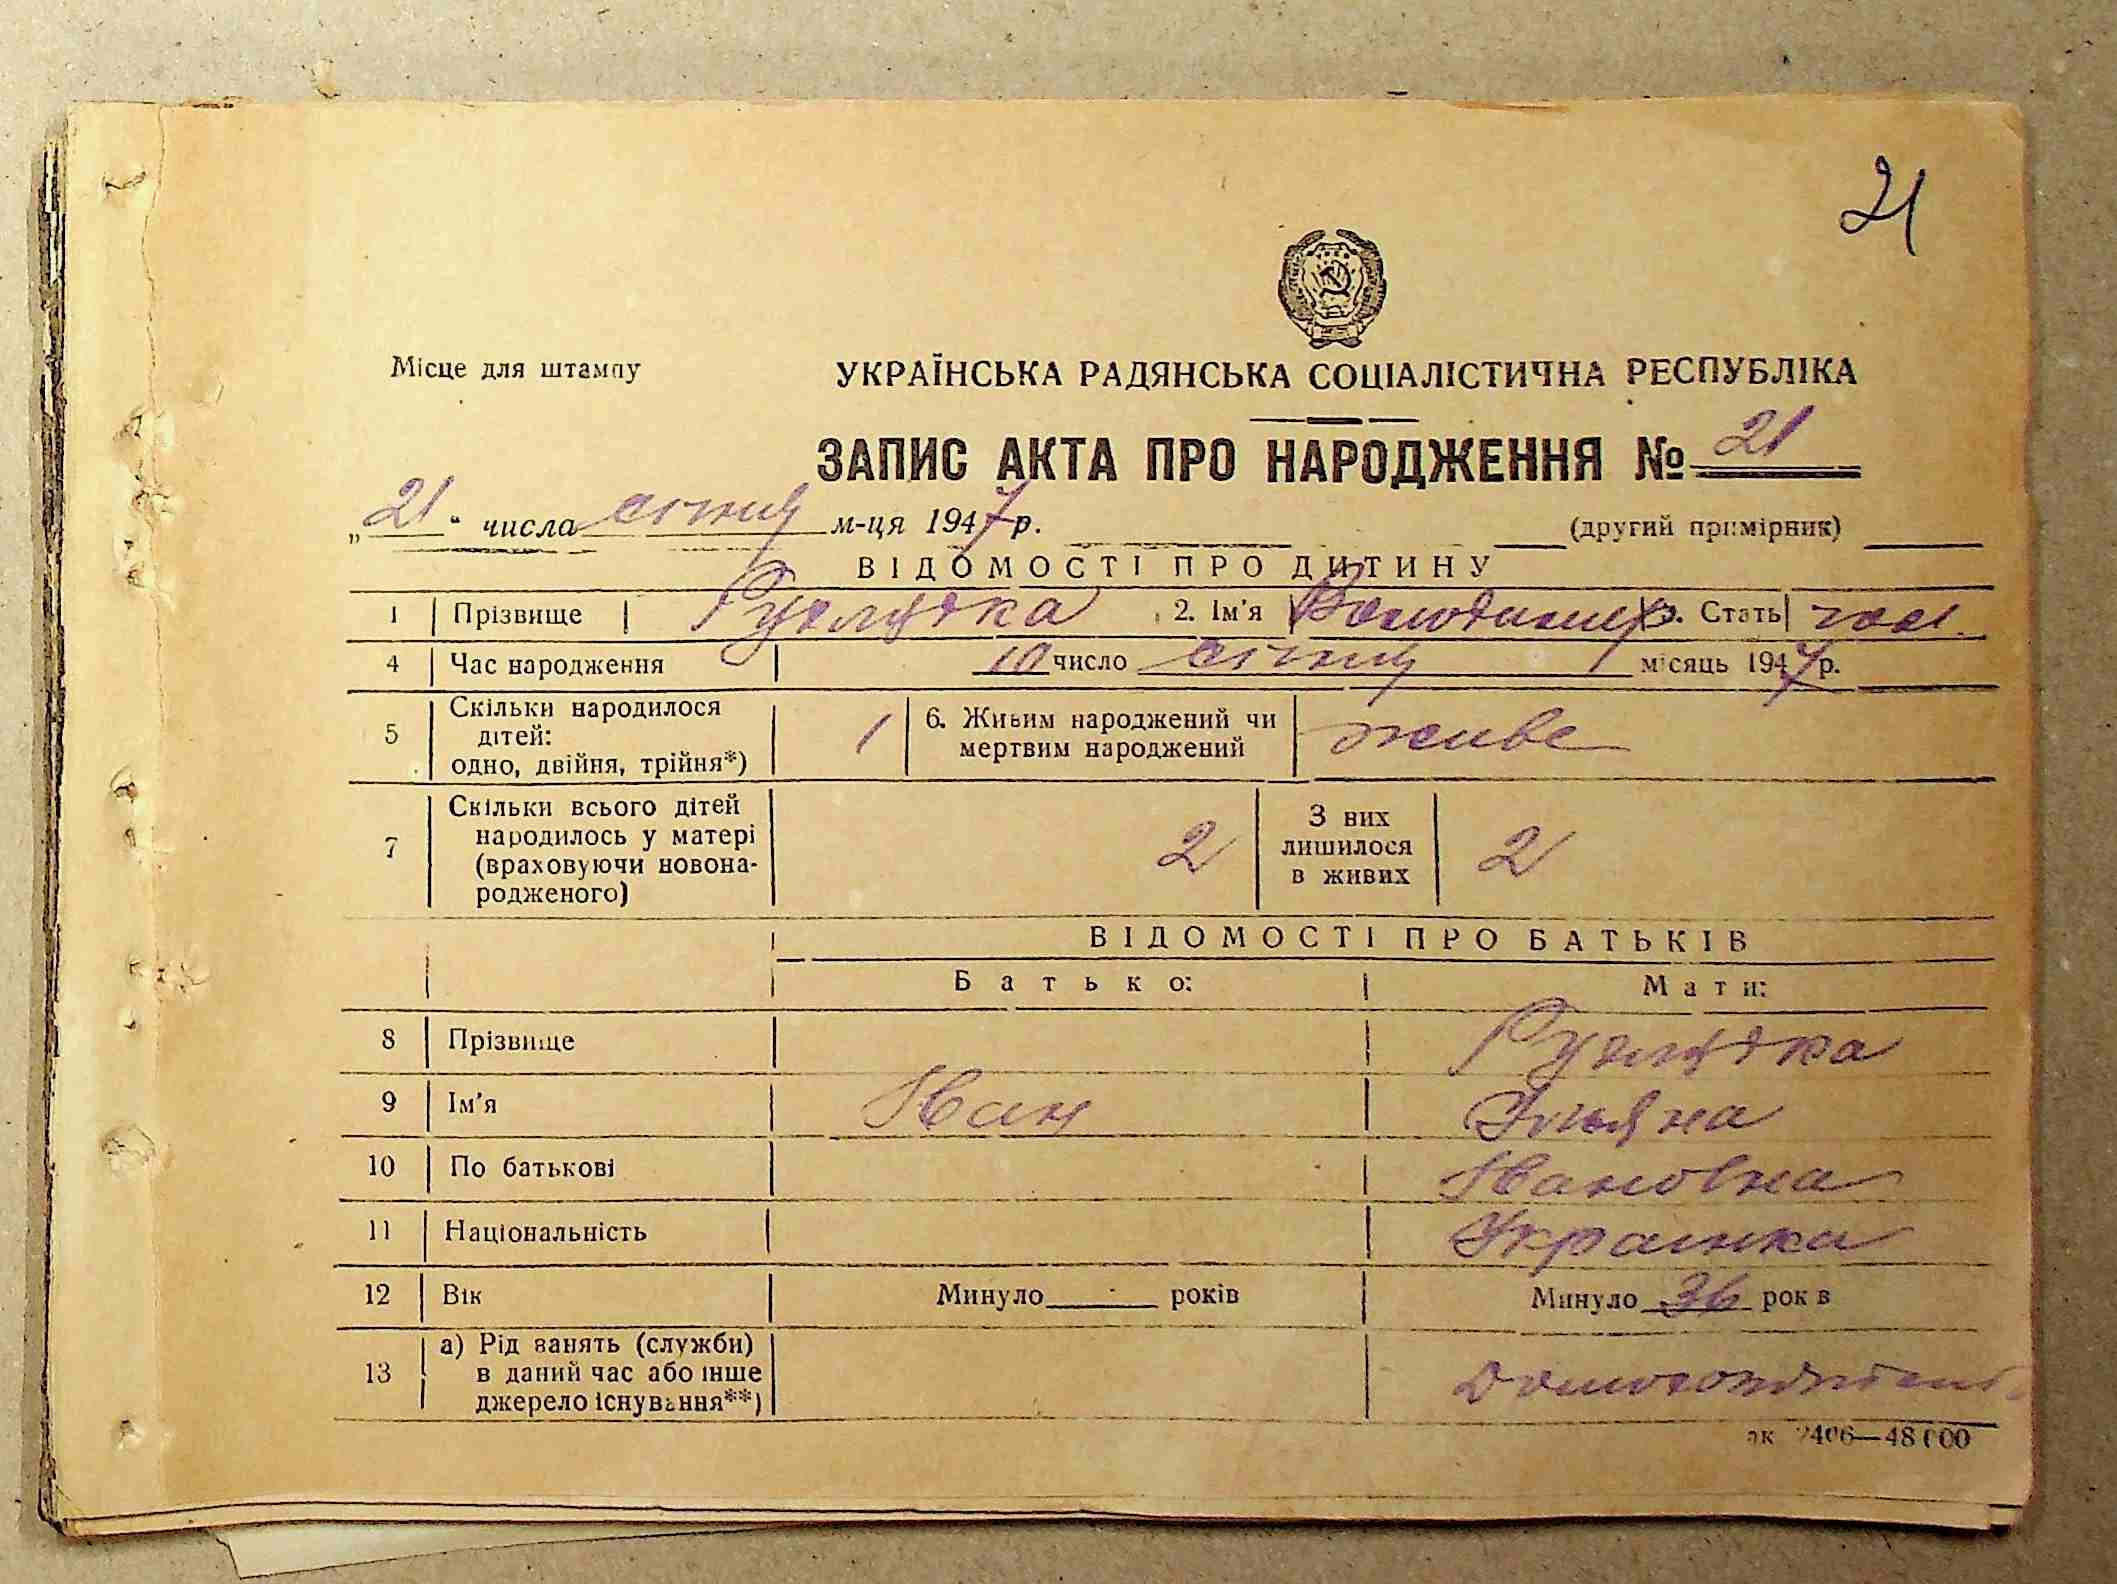 21
Місце для штампу
УКРАЇНСЬКА РАДЯНСЬКА СОЦІАЛІСТИЧНА РЕСПУБЛІКА
ЗАПИС АКТА ПРО НАРОДЖЕННЯ № 21
„21“ числа січня м-ця 1947 р. (другий примірник)
ВІДОМОСТІ ПРО ДИТИНУ
1 Прізвище 2. Ім'я Володимир 3. Стать чол.
4 Час народження 10 число січня місяць 1947 р.
5 Скільки народилося дітей: одно, двійня, трійня*) 1 6. Живим народжений чи мертвим народжений живе
7 Скільки всього дітей народилось у матері (враховуючи новонародженого) 2 З них лишилося в живих 2
ВІДОМОСТІ ПРО БАТЬКІВ
Батько: Мати:
8 Прізвище
9 Ім'я Іван Ульяна
10 По батькові Івановна
11 Національність Украінка
12 Вік Минуло років Минуло 36 рок в
13 а) Рід занять (служби) в даний час або інше джерело існування**)
2406—48 000